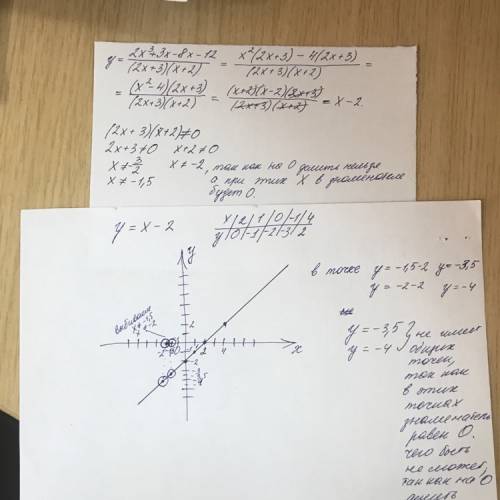 y = 2x³+3x-8x-12 / (2x+3)(x+2) = x²(2x+3) - 4(2x+3) / (2x+3)(x+2) =
= (x²-4)(2x+3) / (2x+3)(x+2) = (x+2)(x-2)(2x+3) / (2x+3)(x+2) = x-2.
(2x+3)(x+2)≠0
2x+3≠0 x+2≠0
x≠-3/2 x≠-2, так как на 0 делить нельзя
x≠-1,5 а при этих X в знаменателе
будет 0.
y = x-2
x | 2 | 1 | 0 | -1 | 4
y | 0 | -1 | -2 | -3 | 2
y
в точке y=-1,5-2 y=-3,5
y=-2-2 y=-4
выбиваем
x≠-1,5
x≠-2
-2 0 2 4 x
2
-2
y=-3,5 } не имеет
y=-4 общих
точек,
так как
в этих
точках
знаменатель
равен 0.
чего быть
не может,
так как на 0
делить